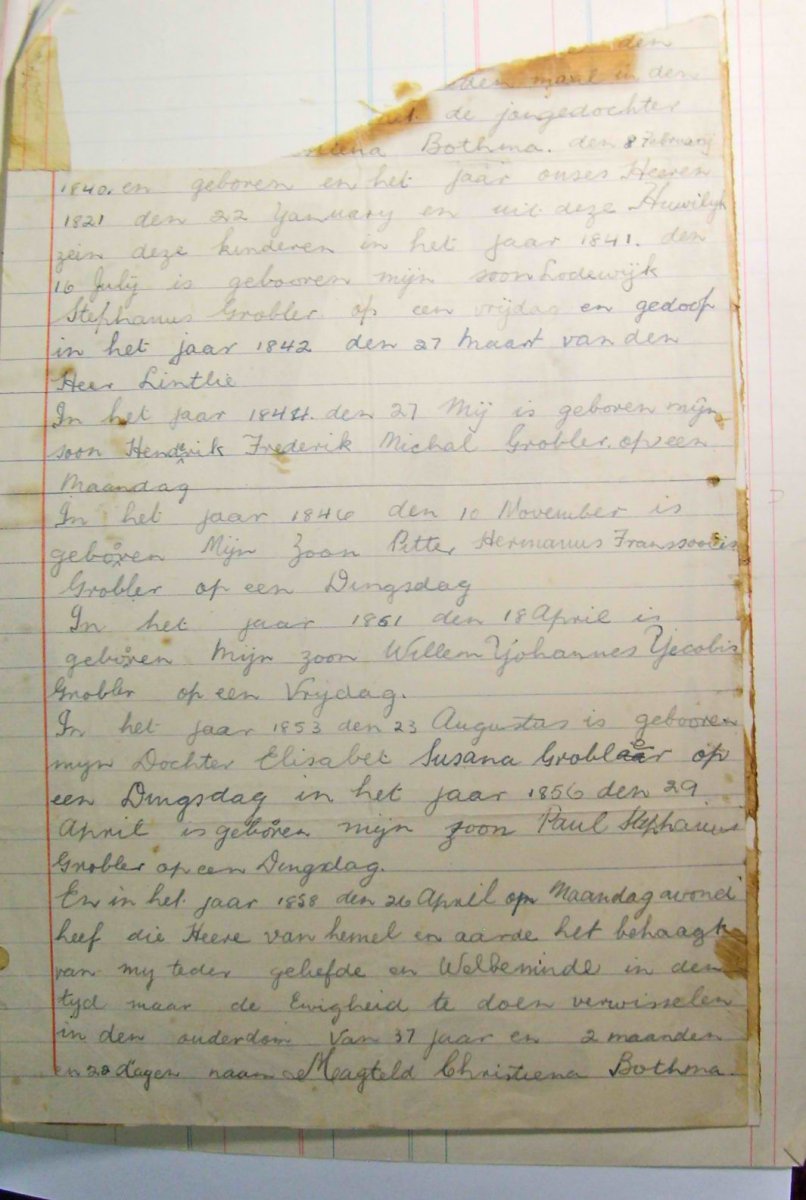 den
den maal in den
de jongedochter
Bothma. den 8 February
1840. en geboren en het jaar onses Heeren
1821 den 22 Yanuary en uit deze Huwilijk
zein deze kinderen in het jaar 1841. den
16 July is gebooren mijn soon Lodewijk
Stephanus Grobler op een vrijdag en gedoop
in het jaar 1842 den 27 Maart van den
Heer Lintlie
In het jaar 1844. den 27 Mij is geboren mijn
soon Hendrik Frederik Michal Grobler. op een
Maandag
In het jaar 1846 den 10 November is
geboren Mijn Zoon Pitter Hermanus Fransoois
Grobler op een Dingsdag
In het jaar 1851 den 18 April is
geboren Mijn zoon Willem Yohannes Yecobis
Grobler op een Vrijdag.
In het jaar 1853 den 23 Augustas is gebooren
mijn Dochter Elisabet Susana Grobler op
een Dingsdag in het jaar 1856 den 29
April is geboren mijn zoon Paul Stephanus
Grobler op een Dingsdag.
En in het jaar 1858 den 26 April op Maandag avond
heef die Heere van hemel en aarde het behaagt
van my teder geliefde en Welbeminde in den
tyd maar de Ewigheid te doen verwisselen
in den ouderdom Van 37 jaar en 2 maanden
en 28 dagen naam Magteld Christiena Bothma.